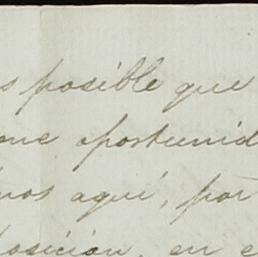 s posible que
one oportunid
nos aquí, por
posición, en e